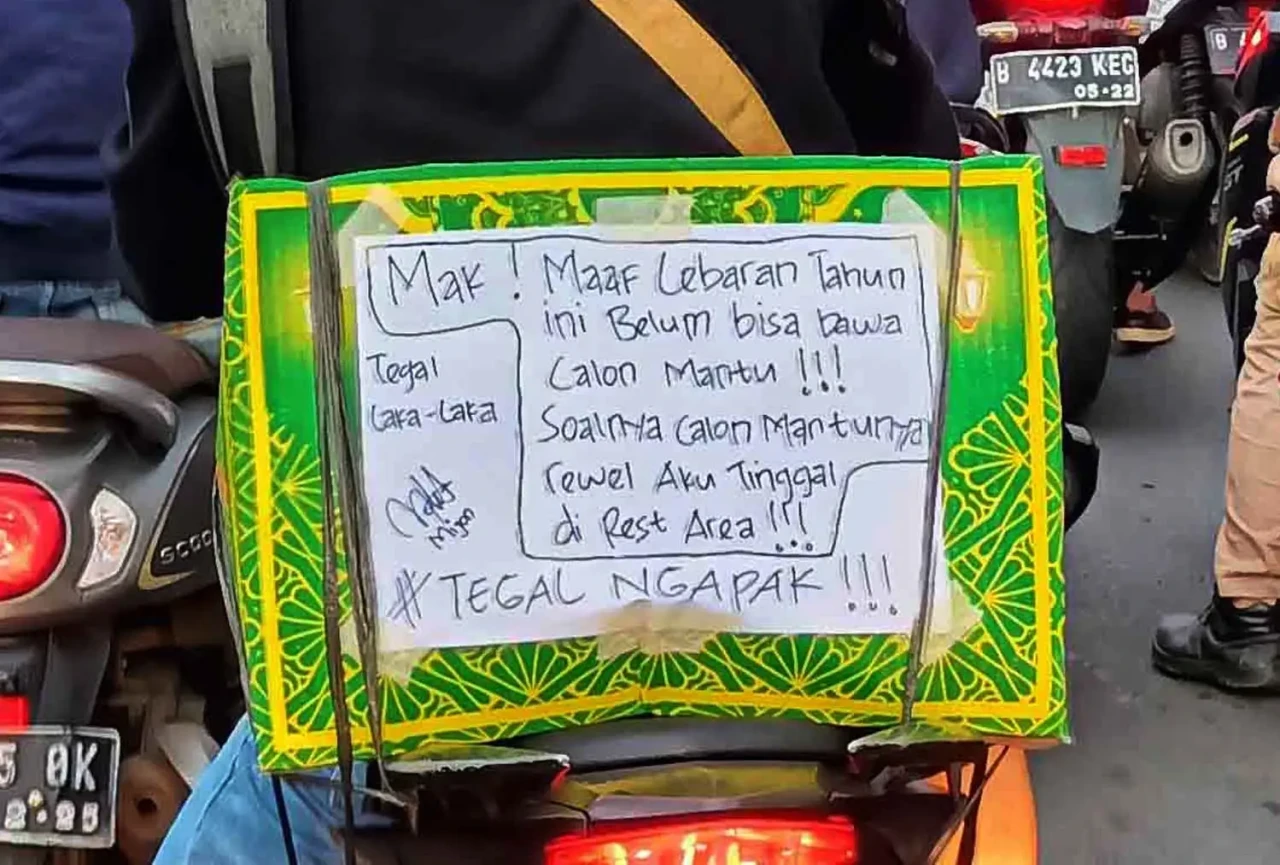 B 4423 KEG
05·22
B
Mak ! Maaf Lebaran Tahun
ini Belum bisa bawa
Calon Mantu !!!
Soalnya Calon Mantunya
rewel Aku Tinggal
di Rest Area !!!
Tegal
Laka-Laka
#TEGAL NGAPAK !!!
SCOO
5 OK
2·25